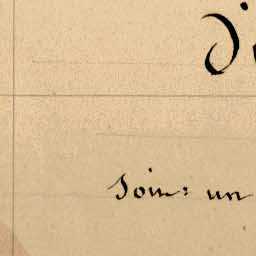 d'
Soin: un